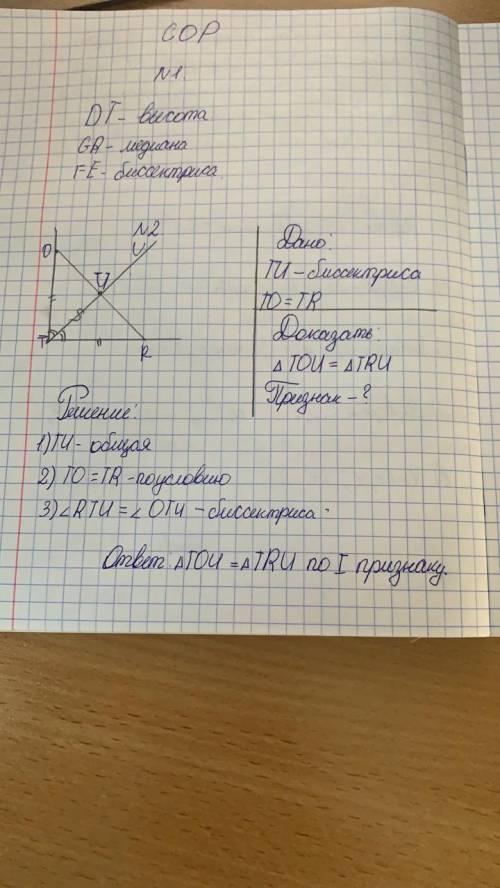 СОР
N1.
DT - высота
GR - медиана
FE - биссектриса
N2
O
U
U
T
R
Дано:
TU - биссектриса
TO = TR
Доказать:
△TOU = △TRU
Признак - ?
Решение:
1) TU - общая
2) TO = TR - по условию
3) ∠RTU = ∠OTU - биссектриса.
Ответ: △TOU = △TRU по I признаку.